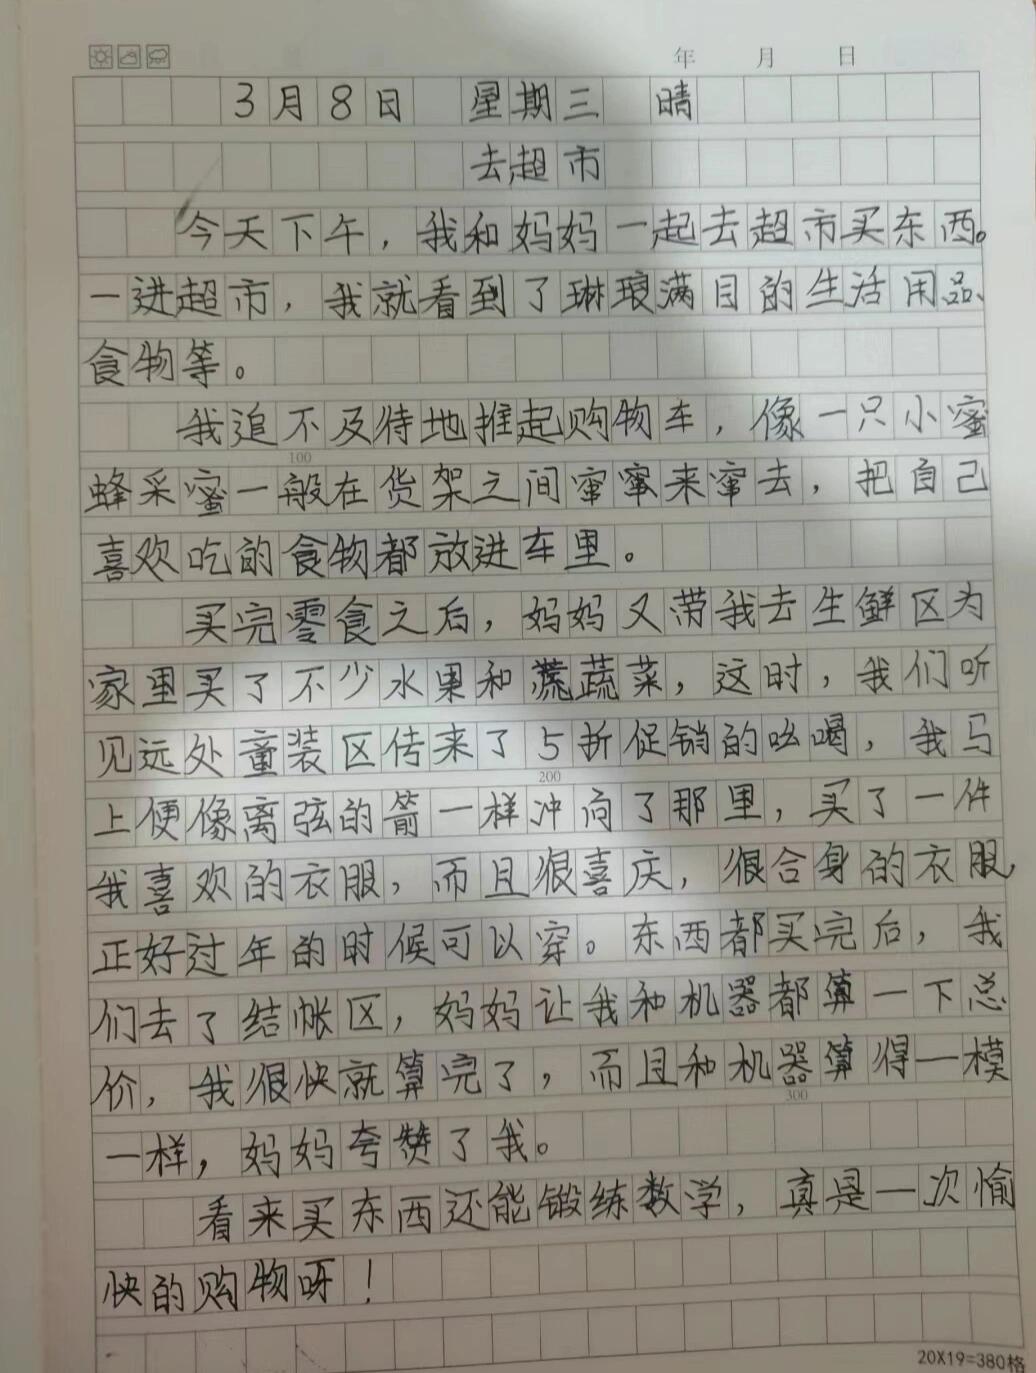 年 月 日
3月8日 星期三 晴
去超市
今天下午，我和妈妈一起去超市买东西。
一进超市，我就看到了琳琅满目的生活用品、
食物等。
我追不及待地推起购物车，像一只小蜜
100
蜂采蜜一般在货架之间窜窜来窜去，把自己
喜欢吃的食物都放进车里。
买完零食之后，妈妈又带我去生鲜区为
家里买了不少水果和蔬菜，这时，我们听
见远处童装区传来了5折促销的吆喝，我马
200
上便像离弦的箭一样冲向了那里，买了一件
我喜欢的衣服，而且很喜庆，很合身的衣服，
正好过年的时候可以穿。东西都买完后，我
们去了结帐区，妈妈让我和机器都算一下总
价，我很快就算完了，而且和机器算得一模
300
一样，妈妈夸赞了我。
看来买东西还能锻练数学，真是一次愉
快的购物呀！
20X19=380格